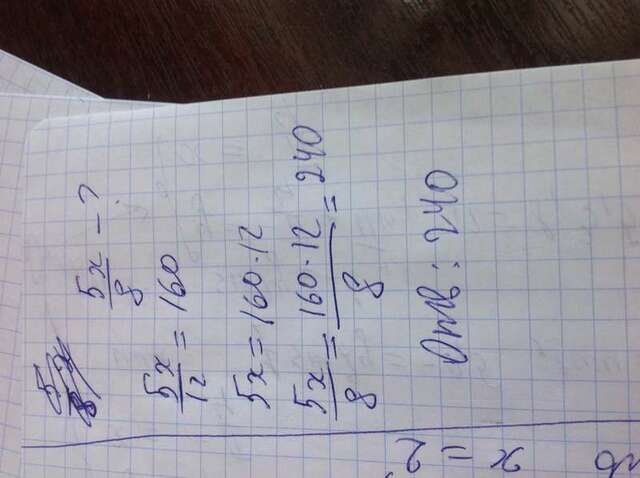 5x/8 – ?
5x/12 = 160
5x = 160·12
5x/8 = 160·12/8 = 240
Отв: 240
x = 2